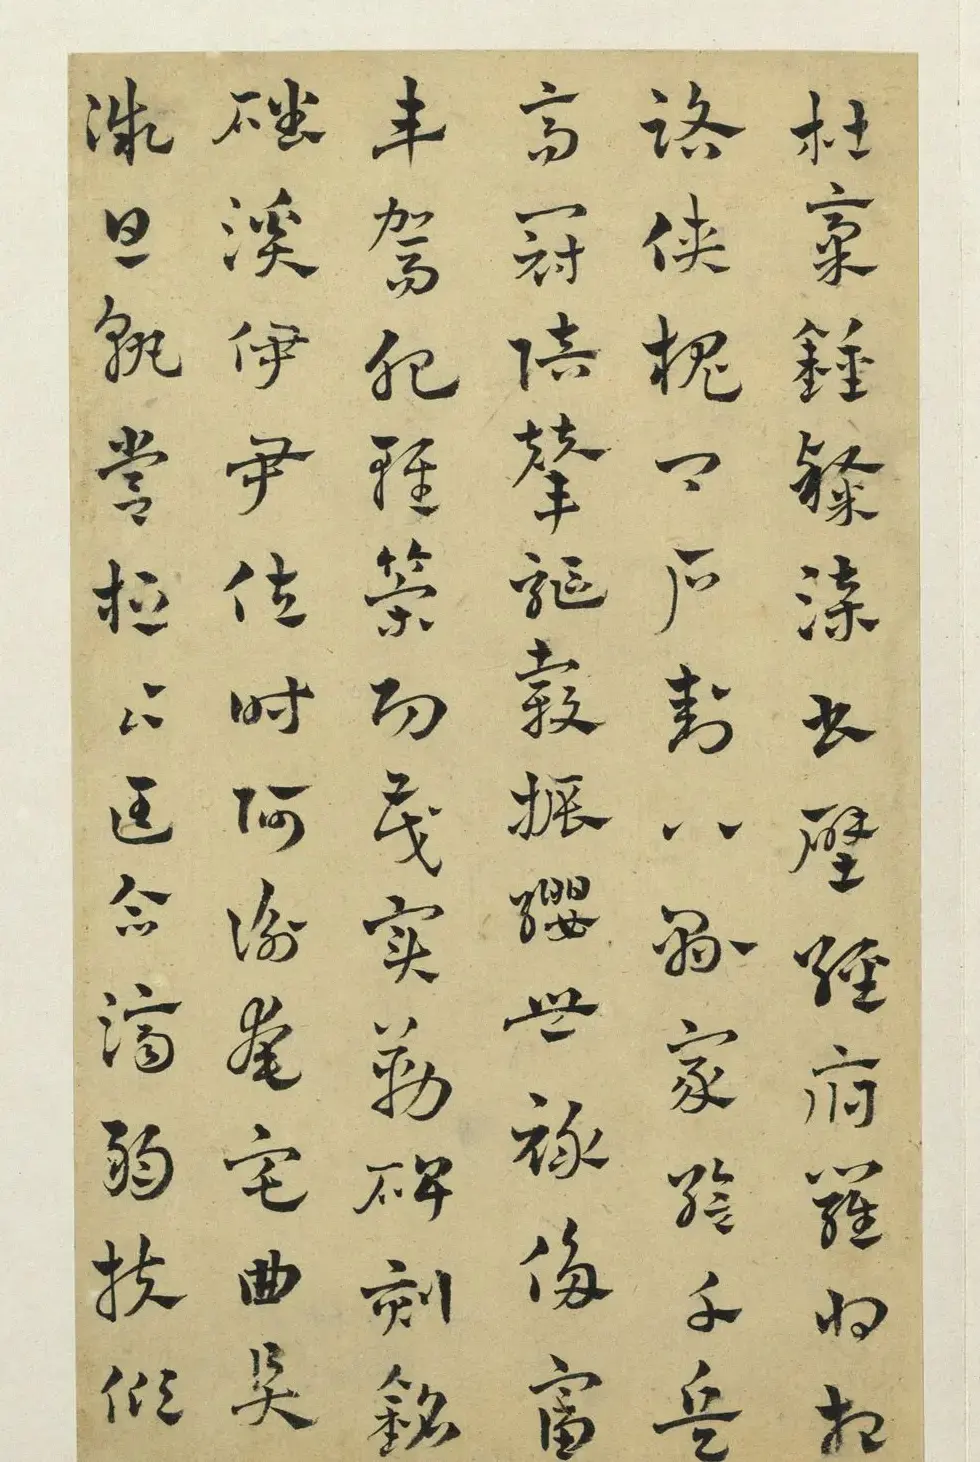 杜稾鍾隸漆書壁經府羅將相
路俠槐卿戶封八縣家給千兵
高冠陪輦驅轂振纓世祿侈富
車駕肥輕策功茂實勒碑刻銘
磻溪伊尹佐時阿衡奄宅曲阜
微旦孰營桓公匡合濟弱扶傾